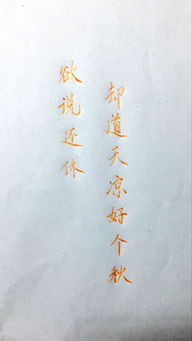 欲说还休
却道天凉好个秋